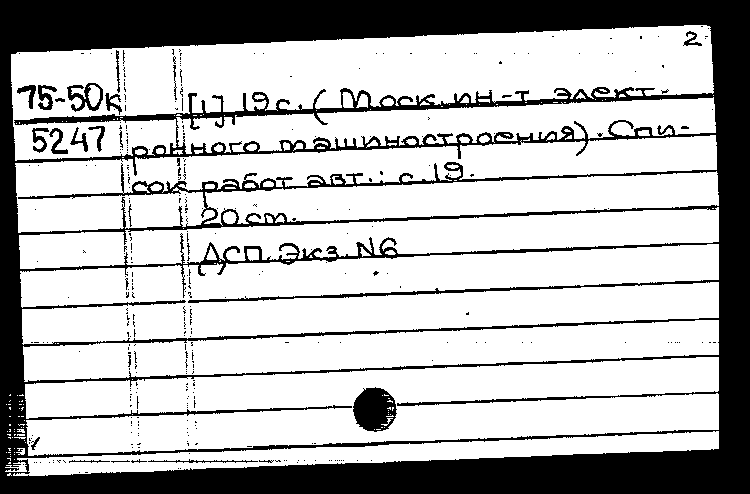 2
75-50к [1], 19 с. (Моск. ин-т элект-
5247 ронного машиностроения). Спи-
сок работ авт.: с. 19.
20 cm.
ДСП. Экз. N6